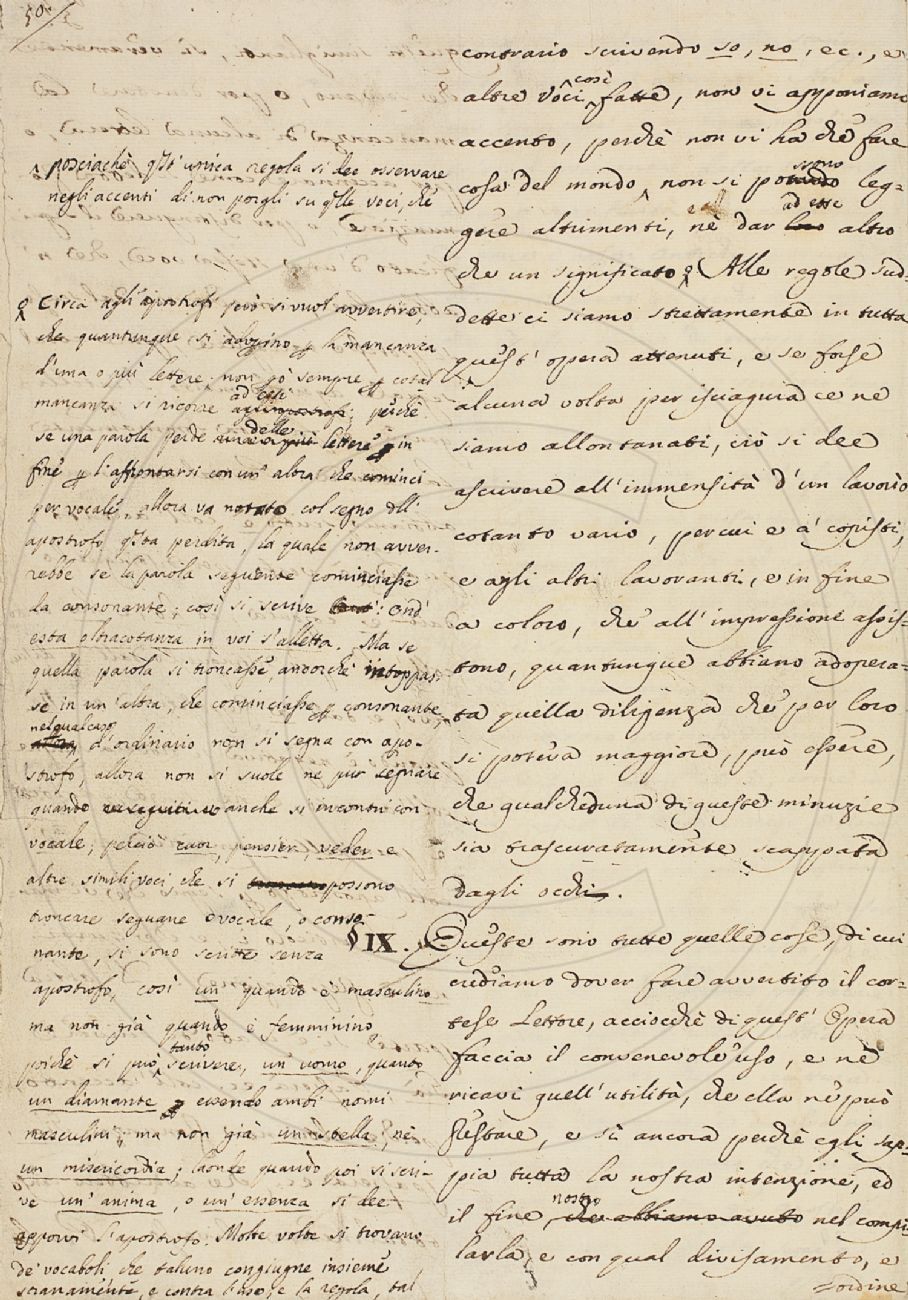 50.
contrario scrivendo so, no, ec., e
altre voci così fatte, non vi apponiamo
accento, perchè non vi ha chi fare
cosa del mondo ^ non si possono leg=
gere altrimenti, nè dar ad esse altro
che un significato. Alle regole sud=
dette ci siamo strettamente in tutta
quest' opera attenuti, e se forse
alcuna volta per isciagura ce ne
siamo allontanati, ciò si dee
ascrivere all'immensità d'un lavorìo
cotanto vario, per cui e a' copisti,
e agli altri lavoranti, e in fine
a coloro, che all'impressione assis=
tono, quantunque abbiano adopera=
ta quella diligenza che per loro
si poteva maggiore, può essere,
che qualcheduna di queste minuzie
sia trascuratamente scappata
dagli occhi.
§ IX. Queste sono tutte quelle cose, di cui
crediamo dover fare avvertito il cor=
tese Lettore, acciocchè di quest' Opera
faccia il convenevole uso, e nè
ricavi quell'utilità, che ella ne può
prestare, e sì ancora perchè egli sap=
pia tutta la nostra intenzione, ed
il fine nostro che abbiamo avuto nel compi=
larla, e con qual divisamento, e
ordine
^ posciachè qsť unica regola si dee osservare
negli accenti di non porgli su qlle voci, che
Circa agli apostrofi però si vuol avvertire,
che quantunque si adoprino p la mancanza
d'una o più lettere, non pò sempre p cotal
mancanza si ricorre ad essi agli apostrofi; perchè
se una parola perde delle una o più lettere in
fine p l'affrontarsi con un' altra che cominci
per vocale, allora va notato col segno dll'
apostrofo qsta perdita, la quale non avver=
rebbe se la parola seguente cominciasse
da consonante; così si scrive : Ond'
esta oltracotanza in voi s'alletta. Ma se
quella parola si troncasse, ancorchè intoppas=
se in un'altra, che cominciasse p consonante,
nel qual caso allora d'ordinario non si segna con apo=
strofo, allora non si suole nè pur segnare
quando anche si incontri con
vocale; perciò cuor, pensier, veder e
altre simili voci, che si possono
troncare seguane vocale, o conso=
nante, si sono scritte senza
apostrofo, così un quando è masculino
ma non già quando è femminino,
poichè si può tanto scrivere, un uomo, quanto
un diamante essendo ambi nomi
masculini, ma non già un stella, nè
un misericordia; laonde quando poi si scri=
ve un' anima, o un' essenza si dee
apporvi l'apostrofo. Molte volte si trovano
de' vocaboli che taluno congiugne insieme
stranamente, e contra l'uso, e la regola, tal